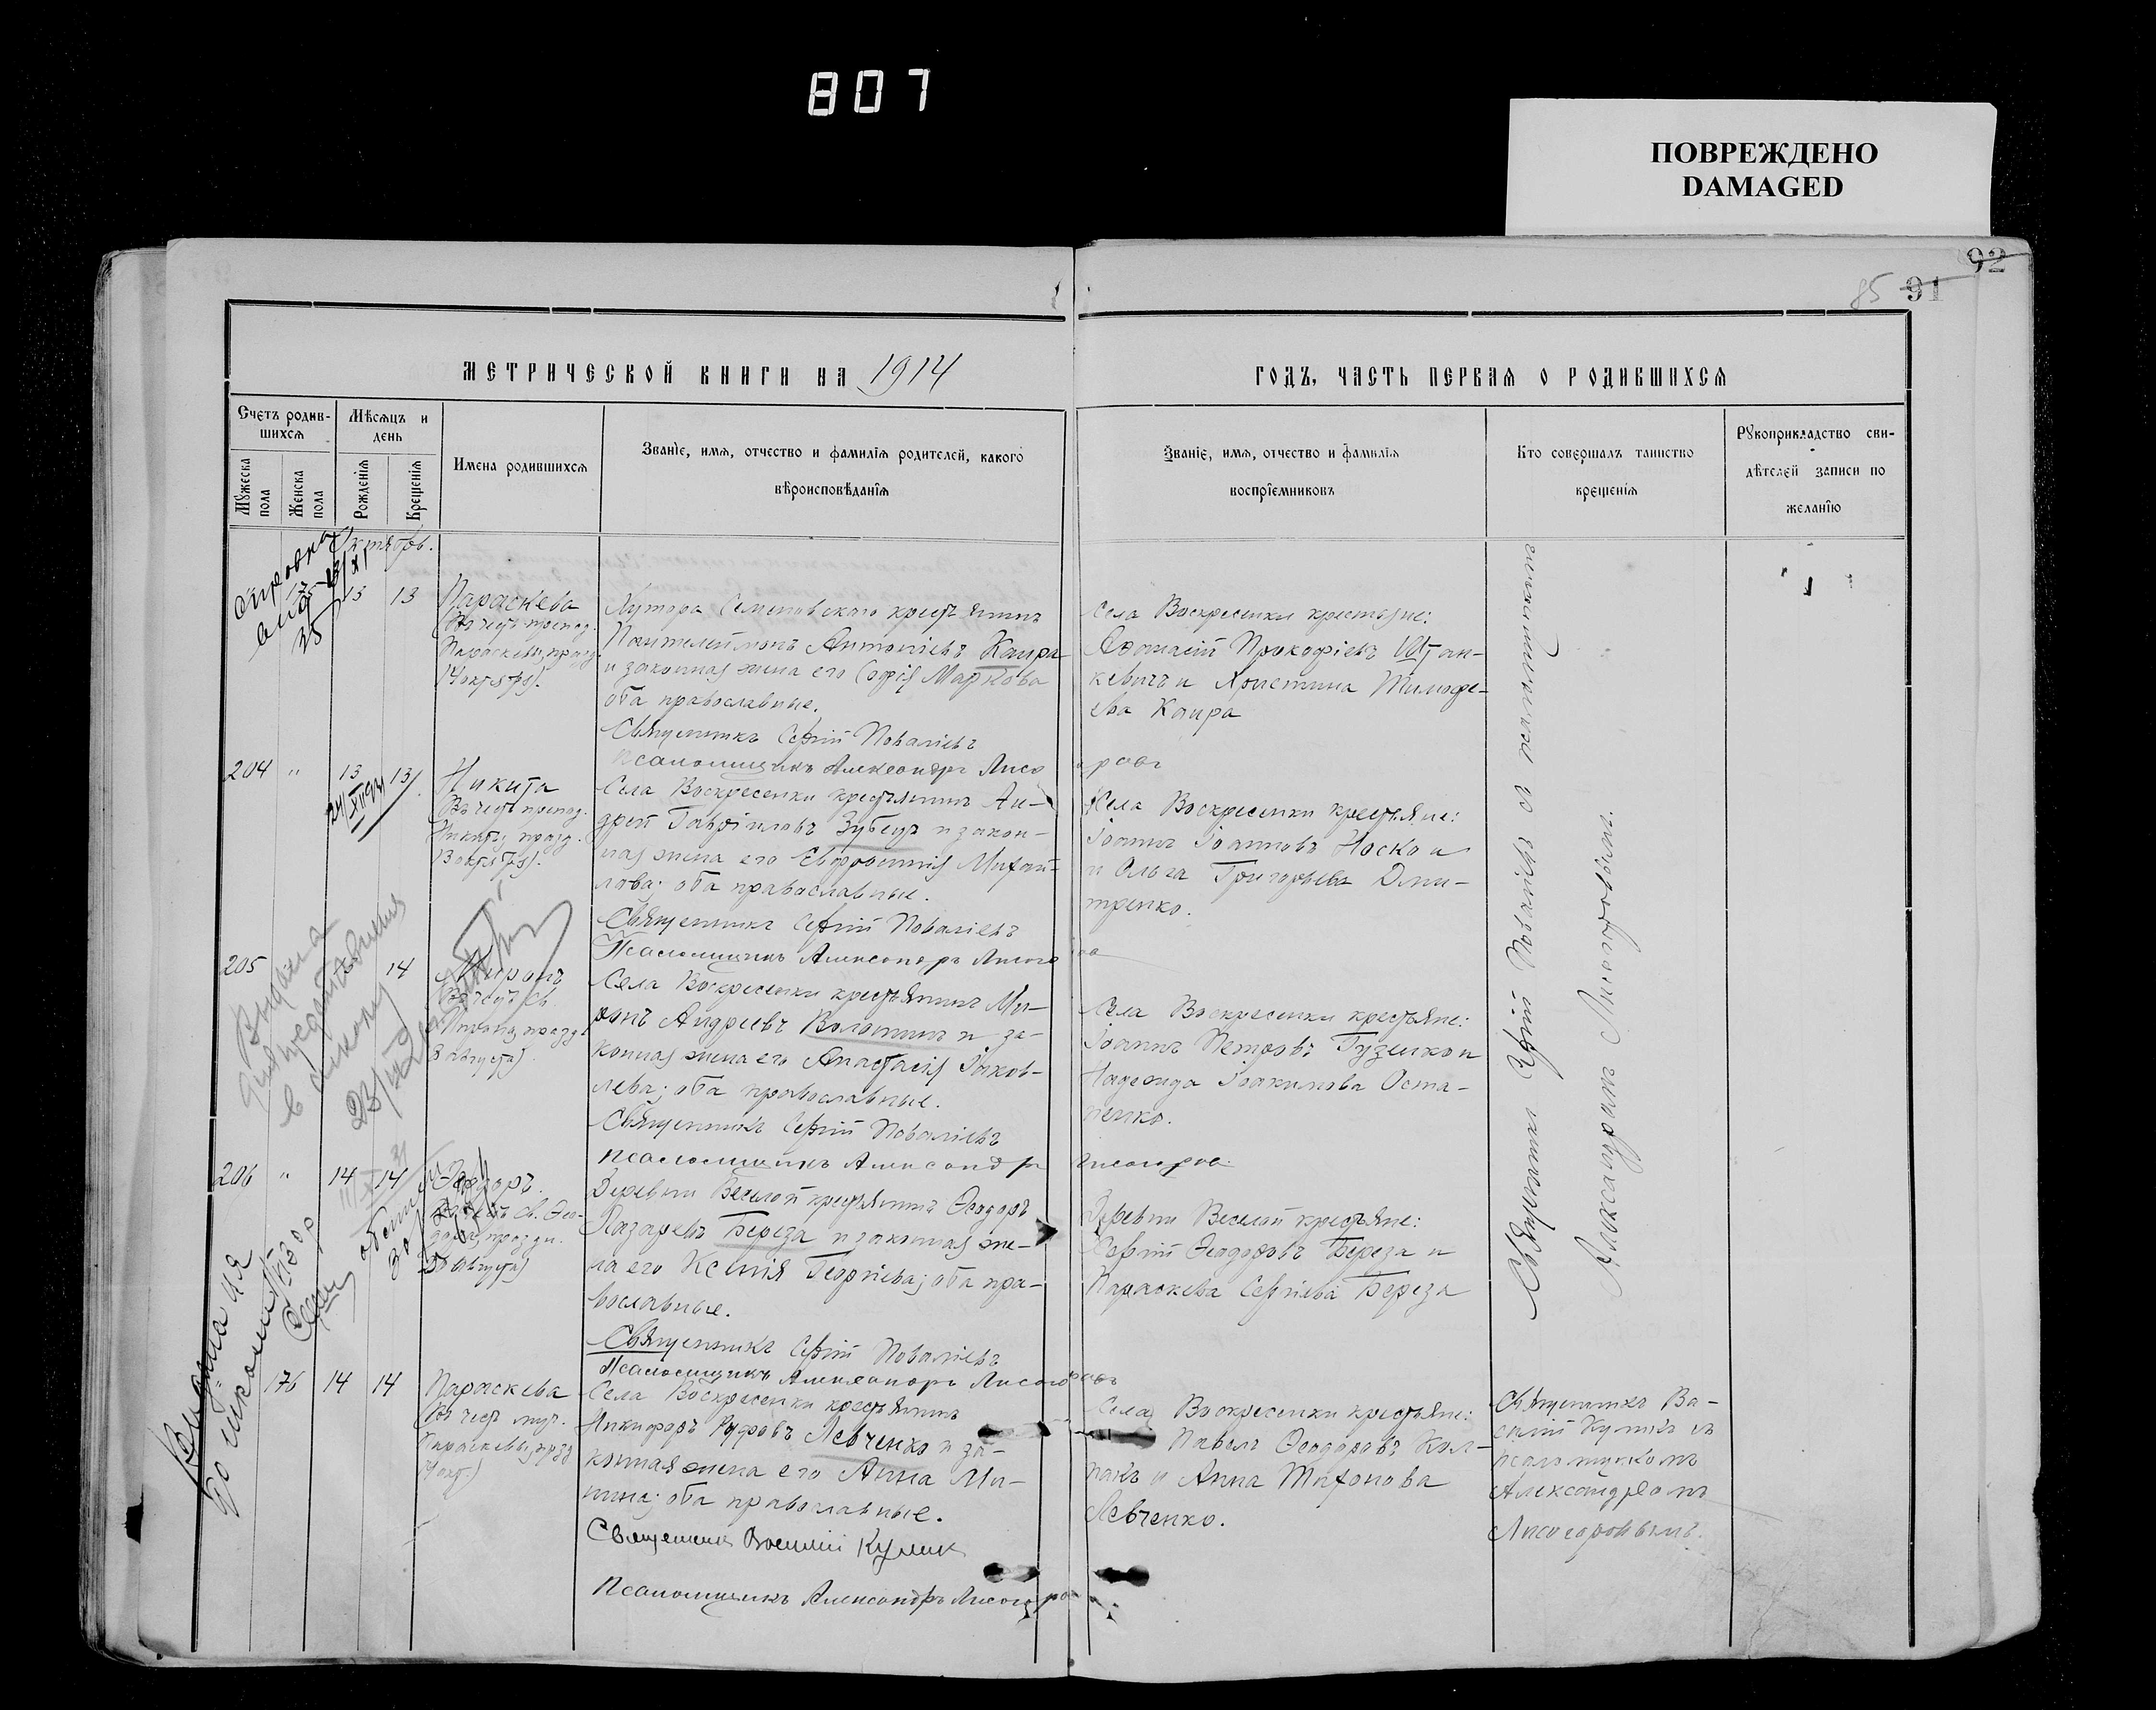 807
ПОВРЕЖДЕНО
DAMAGED
92
85 91
МЕТРИЧЕСКОЙ КНИГИ НА 1914
ГОДЪ, ЧАСТЬ ПЕРВАЯ О РОДИВШИХСЯ
Счетъ родив-
шихся
Мѣсяцъ и
день
Мужеска
пола
Женска
пола
Рожденія
Крещенія
Имена родившихся
Званіе, имя, отчество и фамилія родителей, какого
вѣроисповѣданія
Званіе, имя, отчество и фамилія
воспріемниковъ
Кто совершалъ таинство
крещенія
Рукоприкладство сви-
дѣтелей записи по
желанію
Октябрь.
175 13 13
Параскева
(Въ честь препод.
Параскевы, празд.
14 октября).
Хутора Семеновскаго крестьянинъ
Пантелеймонъ Антоніевъ Каира
и законная жена его Софія Маркова
оба православные.
Священникъ Сергій Поваліевъ
Псаломщикъ Александръ Лисогоровъ
Села Воскресенки крестьяне:
Афанасій Прокофіевъ
кевичъ и Христина Тимофе-
ева Каира
204 " 13 13
Никита
Въ честь препод.
Никиты, празд.
13 октября).
Села Воскресенки крестьянинъ Ан-
дрей Гавріиловъ Зубецъ и закон-
ная жена его Евфросинія Михай-
лова; оба православные.
Священникъ Сергій Поваліевъ
Псаломщикъ Александръ Лисого
Села Воскресенки крестьяне:
Іоаннъ Іоанновъ Носко и
и Ольга Григорьева Дми-
тренко.
205 14
Миронъ
(Въ честь св.
Мирона, празд.
8 августа)
Села Воскресенки крестьянинъ Ми-
ронъ Андреевъ Волошинъ и за-
конная жена его Анастасія Іаков-
лева; оба православные.
Священникъ Сергій Поваліевъ
Псаломщикъ Александръ Лисогоров
Села Воскресенки крестьяне:
Іоаннъ Петровъ Гузенко и
Надежда Іоакимова Оста-
пенко.
206 " 14 14
Ѳеодоръ.
Деревни Веселой крестьянинъ Ѳеодоръ
Лазаревъ Береза и законная же-
на его Ксенія Георгіева; оба пра-
вославные.
Священникъ Сергій Поваліевъ
Псаломщикъ Александръ Лисогоровъ
Деревни Веселой крестьяне:
Сергій Ѳеодоровъ Береза и
Параскева Сергіева Береза
176 14 14
Параскева
(Въ честь муч.
Параскевы, празд
14 окт.)
Села Воскресенки крестьянинъ
Никифоръ Левченко и за-
конная жена его Анна Ми-
нина; оба православные.
Священникъ Василій Кулик
Псаломщикъ Александръ Лисогоров
Села Воскресенки крестьяне:
Павелъ Ѳеодоровъ Кол-
пакъ и Анна Тихонова
Левченко.
Священникъ Сергій Поваліевъ съ псаломщикомъ
Александромъ Лисогоровымъ.
Священникъ Ва-
силій Куликъ съ
псаломщикомъ
Александромъ
Лисогоровымъ.